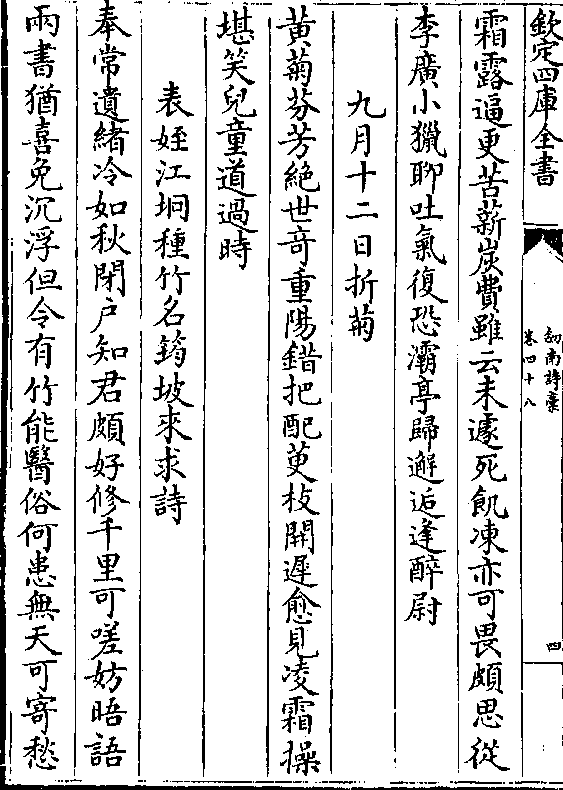 欽定四庫全書
劒南詩藁
卷四十八
四
霜露逼更苦薪炭費雖云未遽死飢凍亦可畏頗思從
李廣小獵聊吐氣復恐灞亭歸邂逅逢醉尉
九月十二日折菊
黃菊芬芳絶世竒重陽錯把配萸枝開遲愈見凌霜操
堪笑兒童道過時
表姪江坰種竹名筠坡來求詩
奉常遺緒冷如秋閉戶知君頗好修千里可嗟妨晤語
兩書猶喜免沉浮但令有竹能醫俗何患無天可寄愁